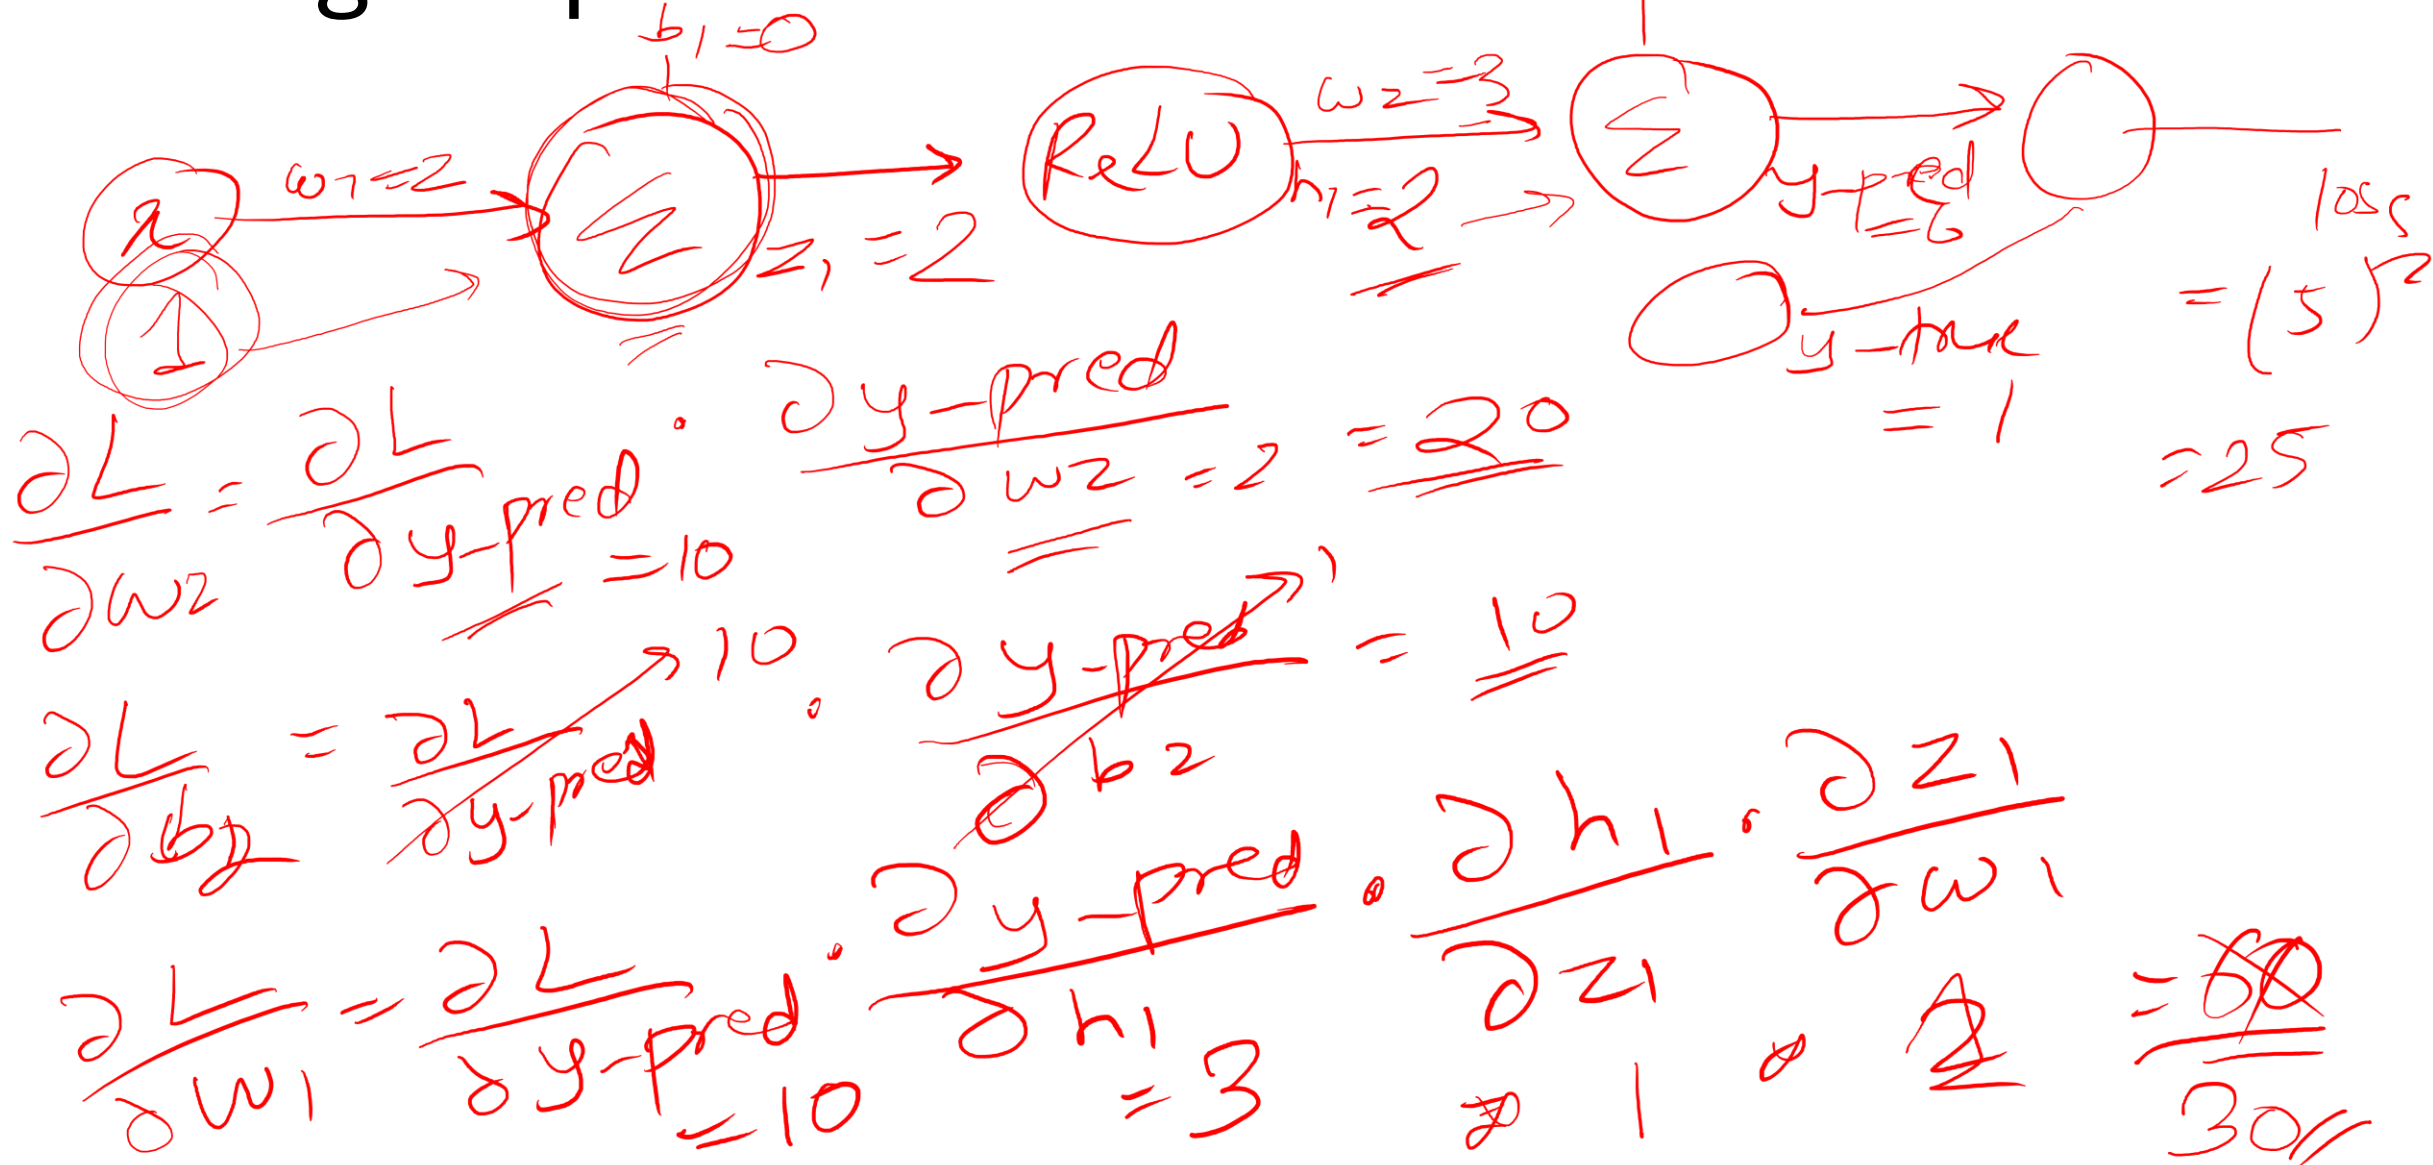 b₁ = 0
x
w₁ = 2
Σ
z₁ = 2
ReLU
w2 = 3
h₁ = 2
Σ
y-pred = 6
loss
= (5)²
= 25
1
y-true
= 1
∂L/∂w2 = ∂L/∂y-pred = 10 · ∂y-pred/∂w2 = 2 = 20
∂L/∂b2 = ∂L/∂y-pred → 10 · ∂y-pred/∂b2 → 1 = 10
∂L/∂w1 = ∂L/∂y-pred · ∂y-pred/∂h1 · ∂h1/∂z1 · ∂z1/∂w1
= 10 = 3 1 · 1 = 60
30